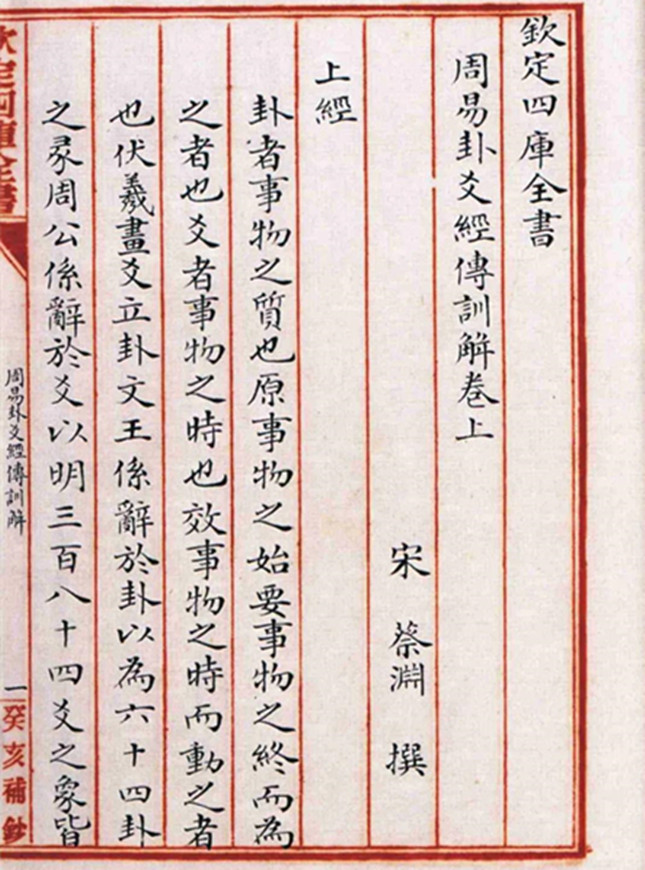 欽定四庫全書
周易卦爻經傳訓解卷上
宋 蔡淵 撰
上經
卦者事物之質也原事物之始要事物之終而為
之者也爻者事物之時也效事物之時而動之者
也伏羲畫爻立卦文王係辭於卦以為六十四卦
之彖周公係辭於爻以明三百八十四爻之象皆
欽定四庫全書
周易卦爻經傳訓解
一
癸亥補鈔